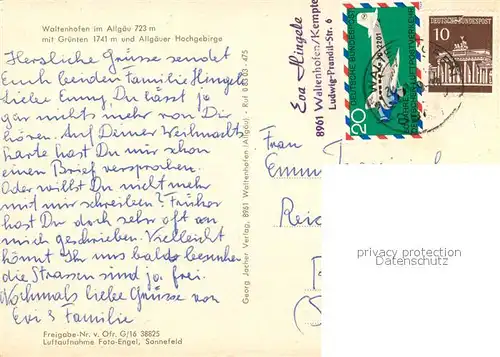 Waltenhofen im Allgäu 723 m
mit Grünten 1741 m und Allgäuer Hochgebirge
Herzliche Grüsse sendet
Euch beiden Familie Hingele
Liebe Emmy, Du lässt ja
gar nichts mehr von Dir
hören. Auf Deiner Weihnachts
karte hast Du mir schon
einen Brief versprochen.
Oder willst Du nicht mehr
mit mir schreiben? Früher
hast Du doch sehr oft an
mich geschrieben. Vielleicht
könnt Ihr uns bald besuchen
die Strassen sind ja frei.
Nochmals liebe Grüsse von
Evi & Familie
Freigabe-Nr. v. Ofr. G/16 38825
Luftaufnahme Foto-Engel, Sonnefeld
Georg Jocher Verlag, 8961 Waltenhofen (Allgäu) - Ruf 0 83 03 - 475
Eva Hingele
8961 Waltenhofen/Kempten
Ludwig-Prandtl-Str. 6
DEUTSCHE BUNDESPOST
20
DEUTSCHE BUNDESPOST
10
Frau
privacy protection
Datenschutz